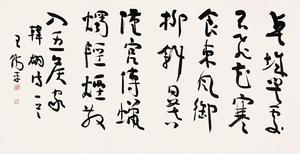 春城無處
不飛花寒
食東風御
柳斜日暮
漢宮傳蠟
燭輕煙散
入五侯家
韓翃詩
王